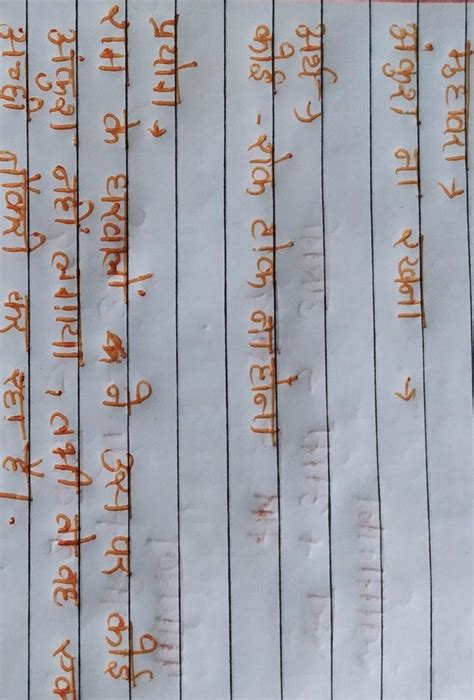 मुहावरा →
अंकुश ना रखना →
अर्थ →
कोई - रोक टोक ना होना
प्रयोग →
राम के घरवालों ने उस पर कोई
अंकुश नहीं लगाया, तभी तो वह एक
अच्छी नौकरी कर रहा है।